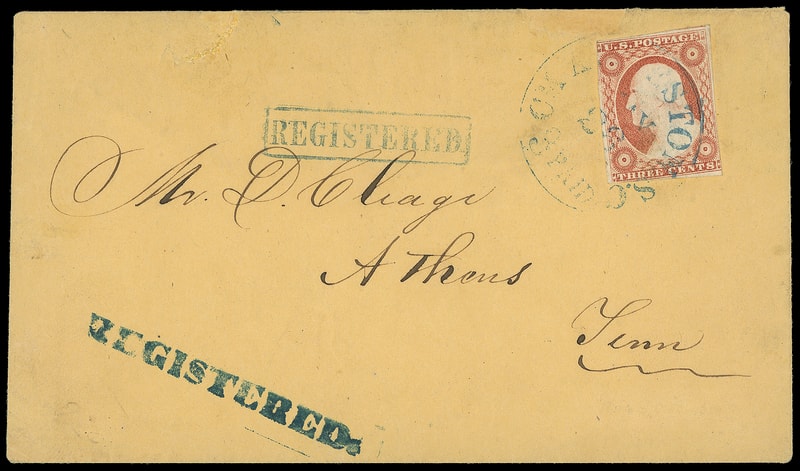 U.S. POSTAGE
THREE CENTS
PAID
REGISTERED
Mr. D. Cleage
Athens
Tenn
REGISTERED.